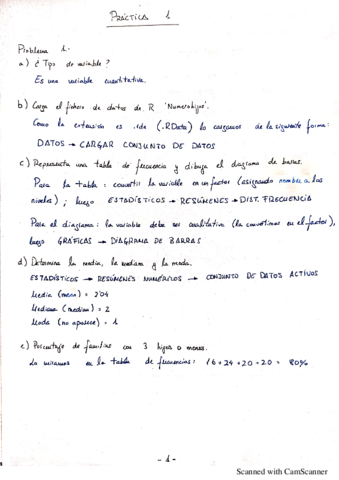 PRÁCTICA 1
Problema 1.
a) ¿Tipo de variable?
Es una variable cuantitativa.
b) Carga el fichero de datos de R 'Numerohijos'.
Como la extensión es .rda (.RData) lo cargamos de la siguiente forma:
DATOS → CARGAR CONJUNTO DE DATOS
c) Representa una tabla de frecuencia y dibuja el diagrama de barras.
Para la tabla: convertir la variable en un factor (asignando nombres a los
niveles); luego ESTADÍSTICOS → RESÚMENES → DIST. FRECUENCIA
Para el diagrama: la variable debe ser cualitativa (la convertimos en el factor),
luego GRÁFICAS → DIAGRAMA DE BARRAS
d) Determina la media, la mediana y la moda.
ESTADÍSTICOS → RESÚMENES NUMÉRICOS → CONJUNTO DE DATOS ACTIVOS
Media (mean) = 2'04
Mediana (median) = 2
Moda (no aparece) = 1
e) Porcentaje de familias con 3 hijos o menos.
Lo miramos en la tabla de frecuencias: 16+24+20+20 = 80%
- 1 -
Scanned with CamScanner